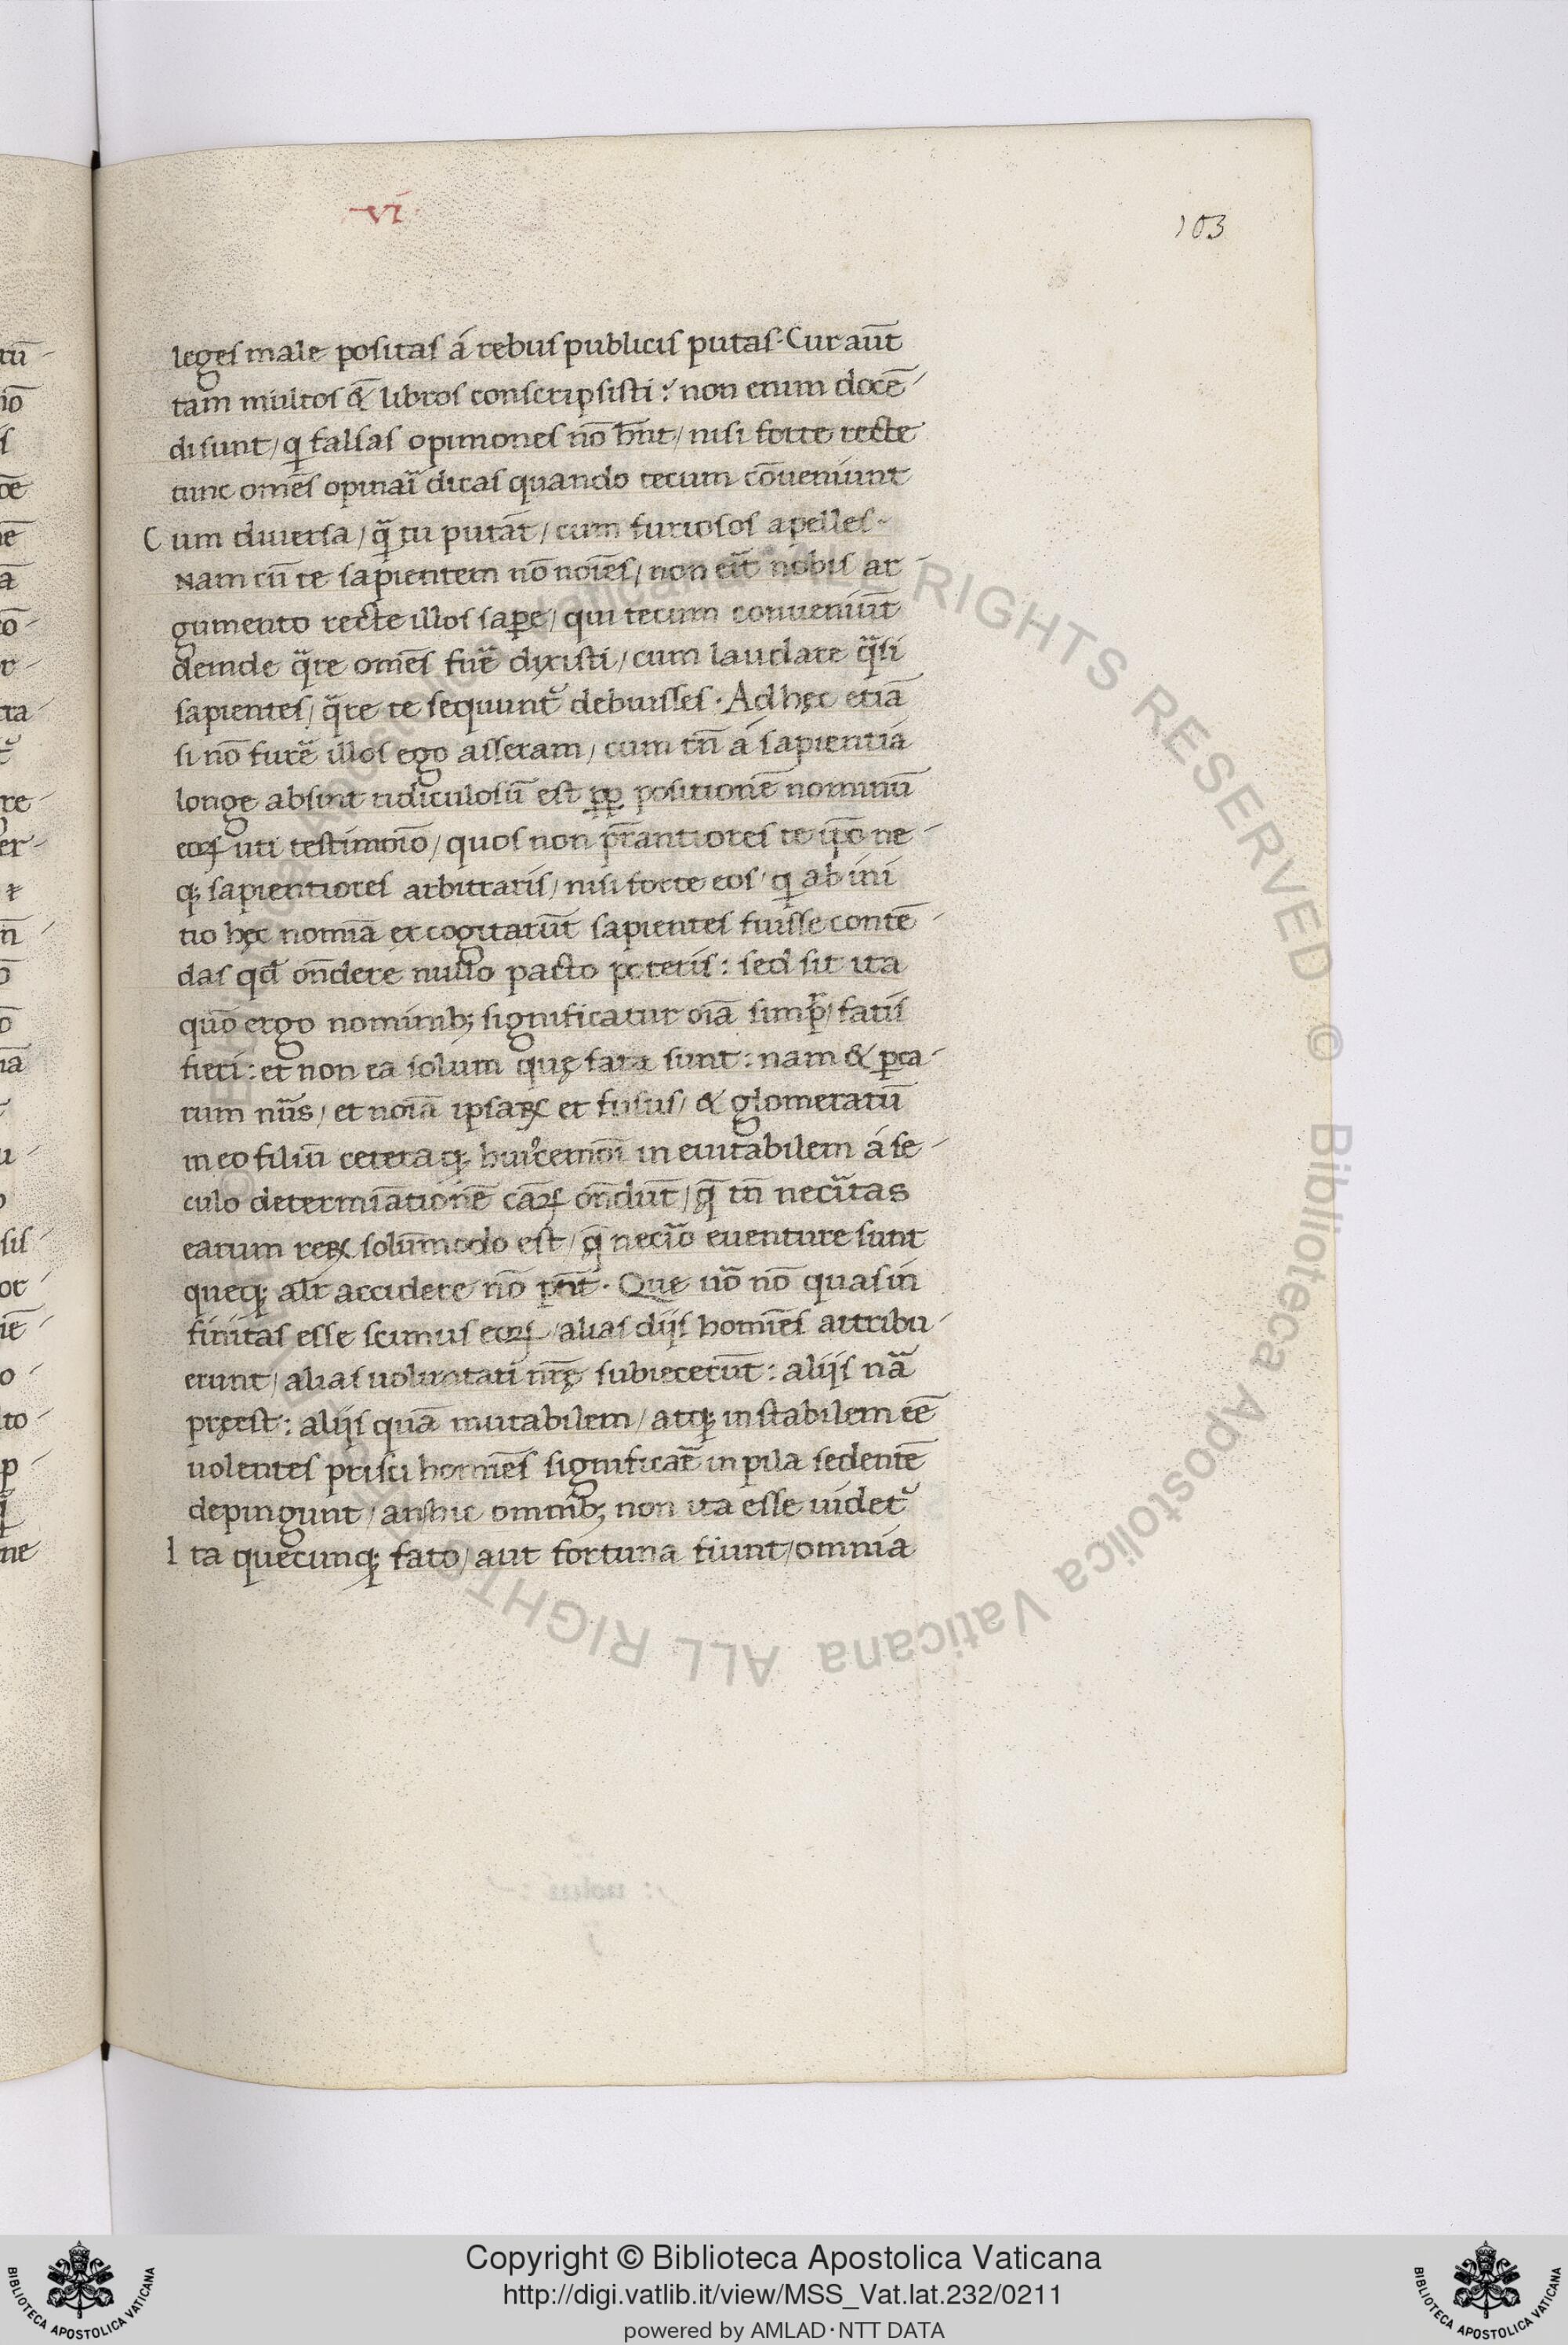 vi
103
leges male positas á rebus publicis putas. Cur aūt
tam multos & libros conscripsisti: non enim docē
di sunt / q falsas opiniones nō hn̄t / nisi forte recte
tunc omēs opinari dicas quando tecum cōueniunt
Cum diuersa / q̄ tu putāt / cum furiosos apelles.
Nam cū te sapientem nō noiēs / non erit nobis ar
gumento recte illos sapere / qui tecum conueniūt
deinde quare omēs furē dixisti / cum laudare quasi
sapientes / quare te sequunt᷑ debuisses. Ad hęc etiā
si nō furē illos ego asseram / cum tn̄ á sapientia
longe absint ridiculosū est pp positionē nominū
eoꝝ uti testimoīo / quos non pr̄antiores te ip̄o ne
q; sapientiores arbitraris / nisi forte eos / q ab ini
tio hęc nomiā excogitarūt sapientes fuisse contē
das qd̄ on̄dere nullo pacto poteris: sed sit ita
quō ergo nominib; significatur oīa simpr̄ fatis
fieri: et non ea solum quę fata sunt: nam & ꝑca
rum nūs / et noīa ipsaꝝ et fusus / & glomeratū
in eo filiū ceteraq; huiᵒcemoī ineuitabilem á se
culo determiātionē cāꝝ on̄dūt / q̄ tn̄ necītas
earum reꝝ solūmodo est / q̄ necīo euenture sunt
queq; alr̄ accidere nō pn̄t. Quę uō nō quas in
finitas esse scimus eoꝝ / alias dijs homiēs attribu
erunt / alias uoluntati nr̄ę subiecerūt: alijs nā
pręest: alijs quā mutabilem / atq; instabilem eē
uolentes prisci homiēs significarē in pila sedentē
depingunt / an hic omnib; non ita esse uidet᷑
Ita quecunq; fato / aut fortuna fiunt / omnia
Copyright © Biblioteca Apostolica Vaticana
http://digi.vatlib.it/view/MSS_Vat.lat.232/0211
powered by AMLAD·NTT DATA